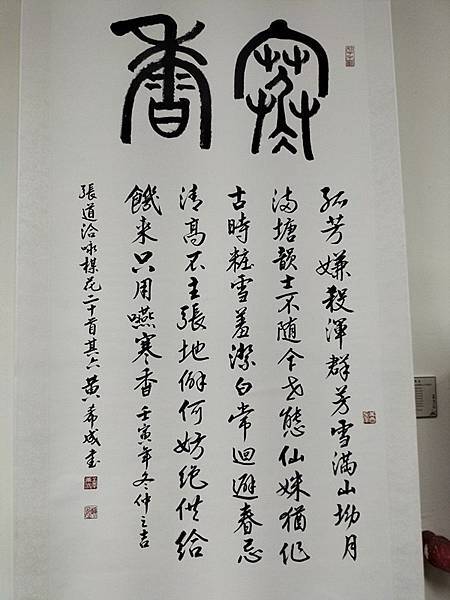 寒香
孤芳嫌殺渾群芳雪滿山坳月
滿塘韻士不隨今世態仙姝猶作
古時粧雪羞潔白常迴避春忌
清高不主張地僻何妨絕供給
饑来只用嚥寒香 壬寅年冬仲之吉
張道洽咏楳花二十首其六 黄希成書